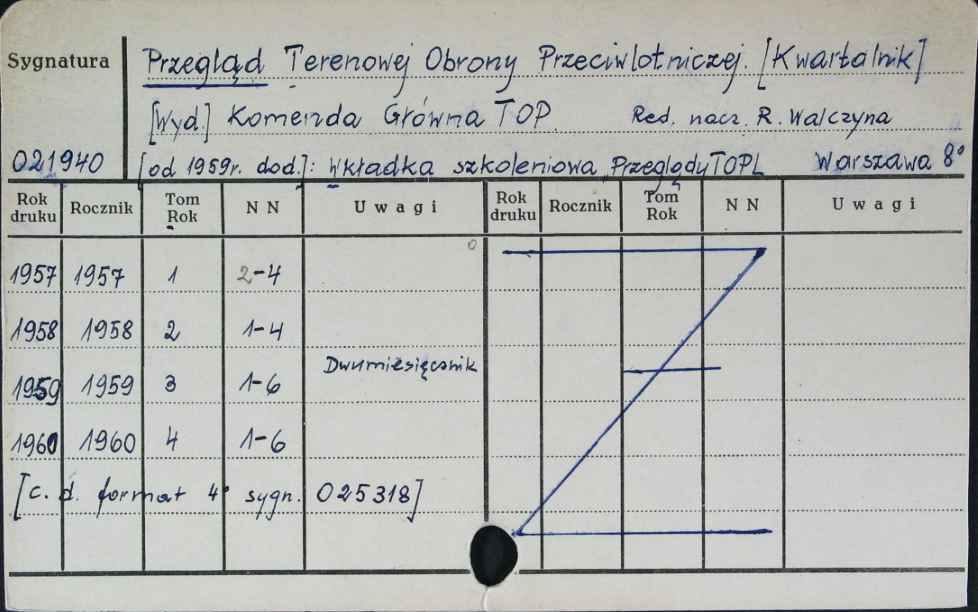 Sygnatura Przegląd Terenowej Obrony Przeciwlotniczej. [Kwartalnik]
[Wyd.] Komenda Główna TOP. Red. nacz. R. Walczyna
021940 [od 1959r. dod.]: Wkładka szkoleniowa Przeglądy TOPL Warszawa 8°
Rok druku Rocznik Tom Rok N N Uwagi Rok druku Rocznik Tom Rok N N Uwagi
1957 1957 1 2-4
1958 1958 2 1-4
Dwumiesięcznik
1959 1959 3 1-6
1960 1960 4 1-6
[c. d. format 4° sygn. 025318]